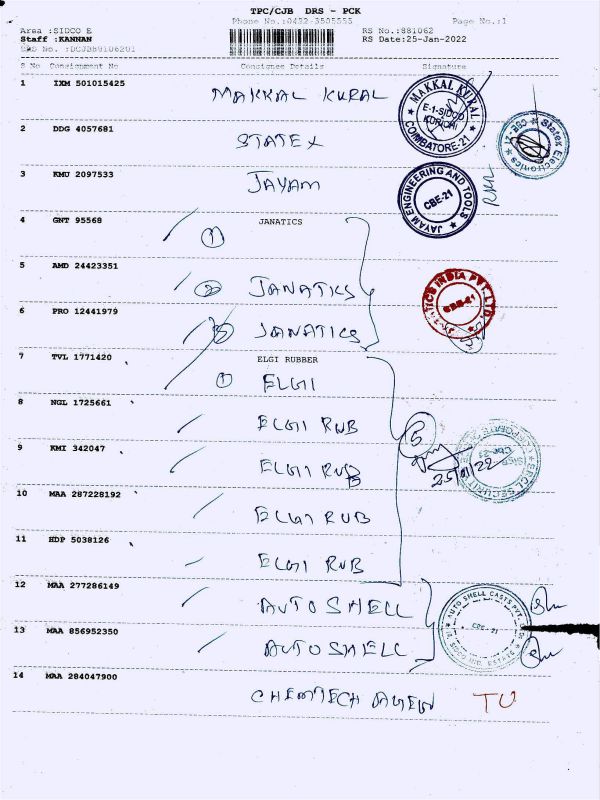 TPC/CJB DRS - PCK
Phone No.:0422-3505555 Page No.:1
Area :SIDCO E RS No.:881062
Staff :KANNAN RS Date:25-Jan-2022
DRS No. :DCJB88106201
S No Consignment No Consignee Details Signature
1 IXM 501015425 MAKKAL KURAL
MAKKAL KURAL
E-1-SIDCO
KURICHI
COIMBATORE-21
2 DDG 4057681 STATEX
Statex Electronics CBE-21
3 KMU 2097533 JAYAM
JAYAM ENGINEERING AND TOOLS
CBE-21
4 GNT 95568 JANATICS
1
5 AMD 24423351 2 JANATICS
JANATICS INDIA PVT. LTD.
CBE-21
6 PRO 12441979 3 JANATICS
7 TVL 1771420 ELGI RUBBER
1 ELGI
8 NGL 1725661 ELGI RUB
5
9 KMI 342047 ELGI RUB
25/01/22
10 MAA 287228192 ELGI RUB
11 HDP 5038126 ELGI RUB
12 MAA 277286149 AUTOSHELL
AUTO SHELL CASTS PVT. LTD.
CBE - 21
13 MAA 856952350 AUTOSHELL
14 MAA 284047900 CHEMTECH